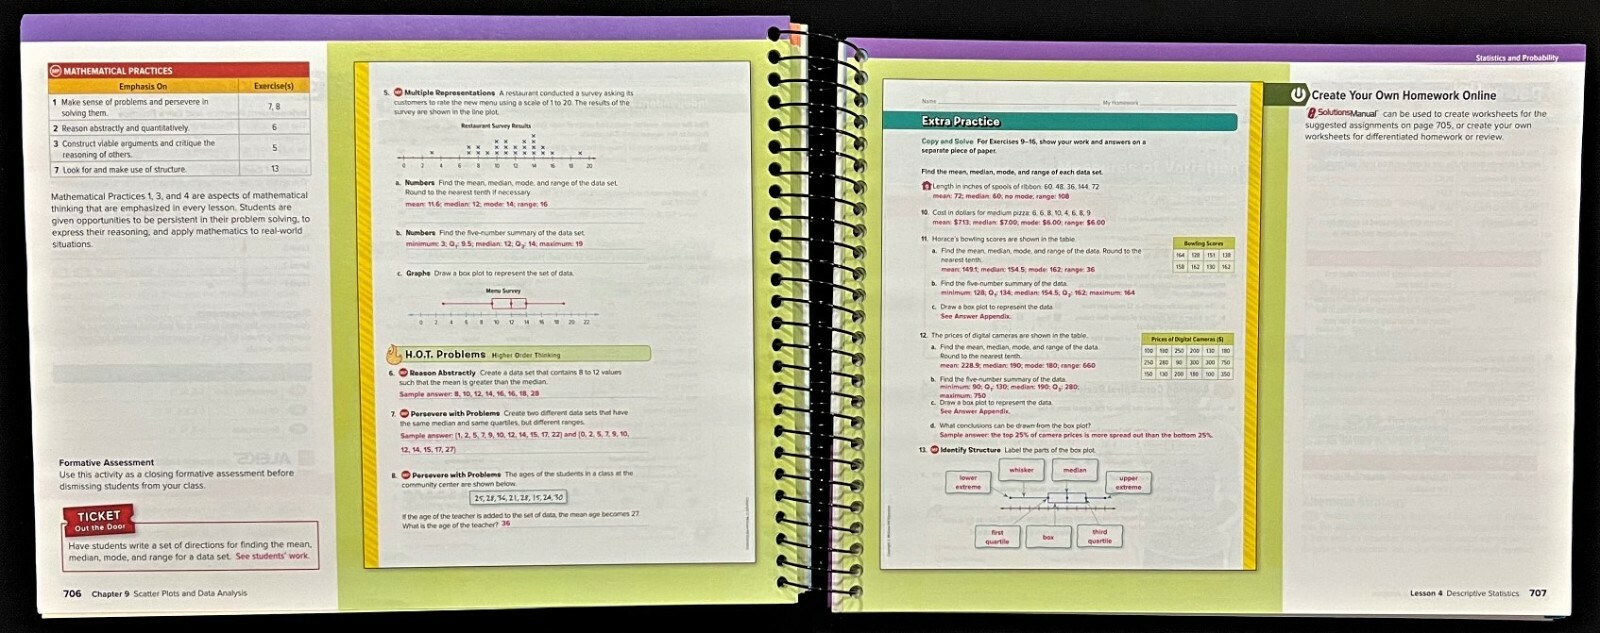 MP MATHEMATICAL PRACTICES
Emphasis On Exercise(s)
1 Make sense of problems and persevere in
solving them. 7, 8
2 Reason abstractly and quantitatively. 6
3 Construct viable arguments and critique the
reasoning of others. 5
7 Look for and make use of structure. 13
Mathematical Practices 1, 3, and 4 are aspects of mathematical
thinking that are emphasized in every lesson. Students are
given opportunities to be persistent in their problem solving, to
express their reasoning, and apply mathematics to real-world
situations.
Formative Assessment
Use this activity as a closing formative assessment before
dismissing students from your class.
TICKET
Out the Door
Have students write a set of directions for finding the mean,
median, mode, and range for a data set. See students' work.
706 Chapter 9 Scatter Plots and Data Analysis
5. MP Multiple Representations A restaurant conducted a survey asking its
customers to rate the new menu using a scale of 1 to 20. The results of the
survey are shown in the line plot.
Restaurant Survey Results
0 2 4 6 8 10 12 14 16 18 20
a. Numbers Find the mean, median, mode, and range of the data set.
Round to the nearest tenth if necessary.
mean: 11.6; median: 12; mode: 14; range: 16
b. Numbers Find the five-number summary of the data set.
minimum: 3; Q1: 9.5; median: 12; Q3: 14; maximum: 19
c. Graphs Draw a box plot to represent the set of data.
Menu Survey
0 2 4 6 8 10 12 14 16 18 20 22
H.O.T. Problems Higher Order Thinking
6. MP Reason Abstractly Create a data set that contains 8 to 12 values
such that the mean is greater than the median.
Sample answer: 8, 10, 12, 14, 16, 16, 18, 28
7. MP Persevere with Problems Create two different data sets that have
the same median and same quartiles, but different ranges.
Sample answer: {1, 2, 5, 7, 9, 10, 12, 14, 15, 17, 22} and {0, 2, 5, 7, 9, 10,
12, 14, 15, 17, 27}
8. MP Persevere with Problems The ages of the students in a class at the
community center are shown below.
25, 28, 34, 21, 28, 15, 24, 30
If the age of the teacher is added to the set of data, the mean age becomes 27.
What is the age of the teacher? 36
Statistics and Probability
Name My Homework
Extra Practice
Copy and Solve For Exercises 9–16, show your work and answers on a
separate piece of paper.
Find the mean, median, mode, and range of each data set.
Length in inches of spools of ribbon: 60, 48, 36, 144, 72
mean: 72; median: 60; no mode; range: 108
10. Cost in dollars for medium pizza: 6, 6, 8, 10, 4, 6, 8, 9
mean: $7.13; median: $7.00; mode: $6.00; range: $6.00
11. Horace's bowling scores are shown in the table.
a. Find the mean, median, mode, and range of the data. Round to the
nearest tenth.
mean: 149.1; median: 154.5; mode: 162; range: 36
b. Find the five-number summary of the data.
minimum: 128; Q1: 134; median: 154.5; Q3: 162; maximum: 164
c. Draw a box plot to represent the data.
See Answer Appendix.
Bowling Scores
164 128 151 138
158 162 130 162
12. The prices of digital cameras are shown in the table.
a. Find the mean, median, mode, and range of the data.
Round to the nearest tenth.
mean: 228.9; median: 190; mode: 180; range: 660
b. Find the five-number summary of the data.
minimum: 90; Q1: 130; median: 190; Q3: 280;
maximum: 750
c. Draw a box plot to represent the data.
See Answer Appendix.
d. What conclusions can be drawn from the box plot?
Sample answer: the top 25% of camera prices is more spread out than the bottom 25%.
Prices of Digital Cameras ($)
250 200 130 180
250 280 90 300 300 750
150 130 200 180 100 350
13. MP Identify Structure Label the parts of the box plot.
lower
extreme
whisker
median
upper
extreme
first
quartile
box
third
quartile
Create Your Own Homework Online
eSolutionsManual can be used to create worksheets for the
suggested assignments on page 705, or create your own
worksheets for differentiated homework or review.
Lesson 4 Descriptive Statistics 707